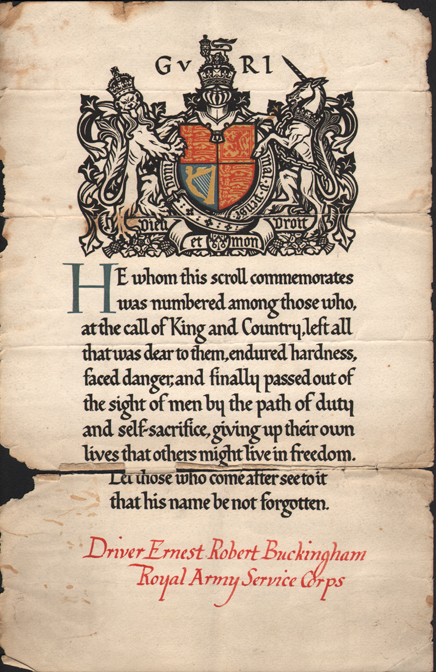 G V R I
Honi soit qui mal y pense
Dieu et mon Droit
HE whom this scroll commemorates
was numbered among those who,
at the call of King and Country, left all
that was dear to them, endured hardness,
faced danger, and finally passed out of
the sight of men by the path of duty
and self-sacrifice, giving up their own
lives that others might live in freedom.
Let those who come after see to it
that his name be not forgotten.
Driver Ernest Robert Buckingham
Royal Army Service Corps